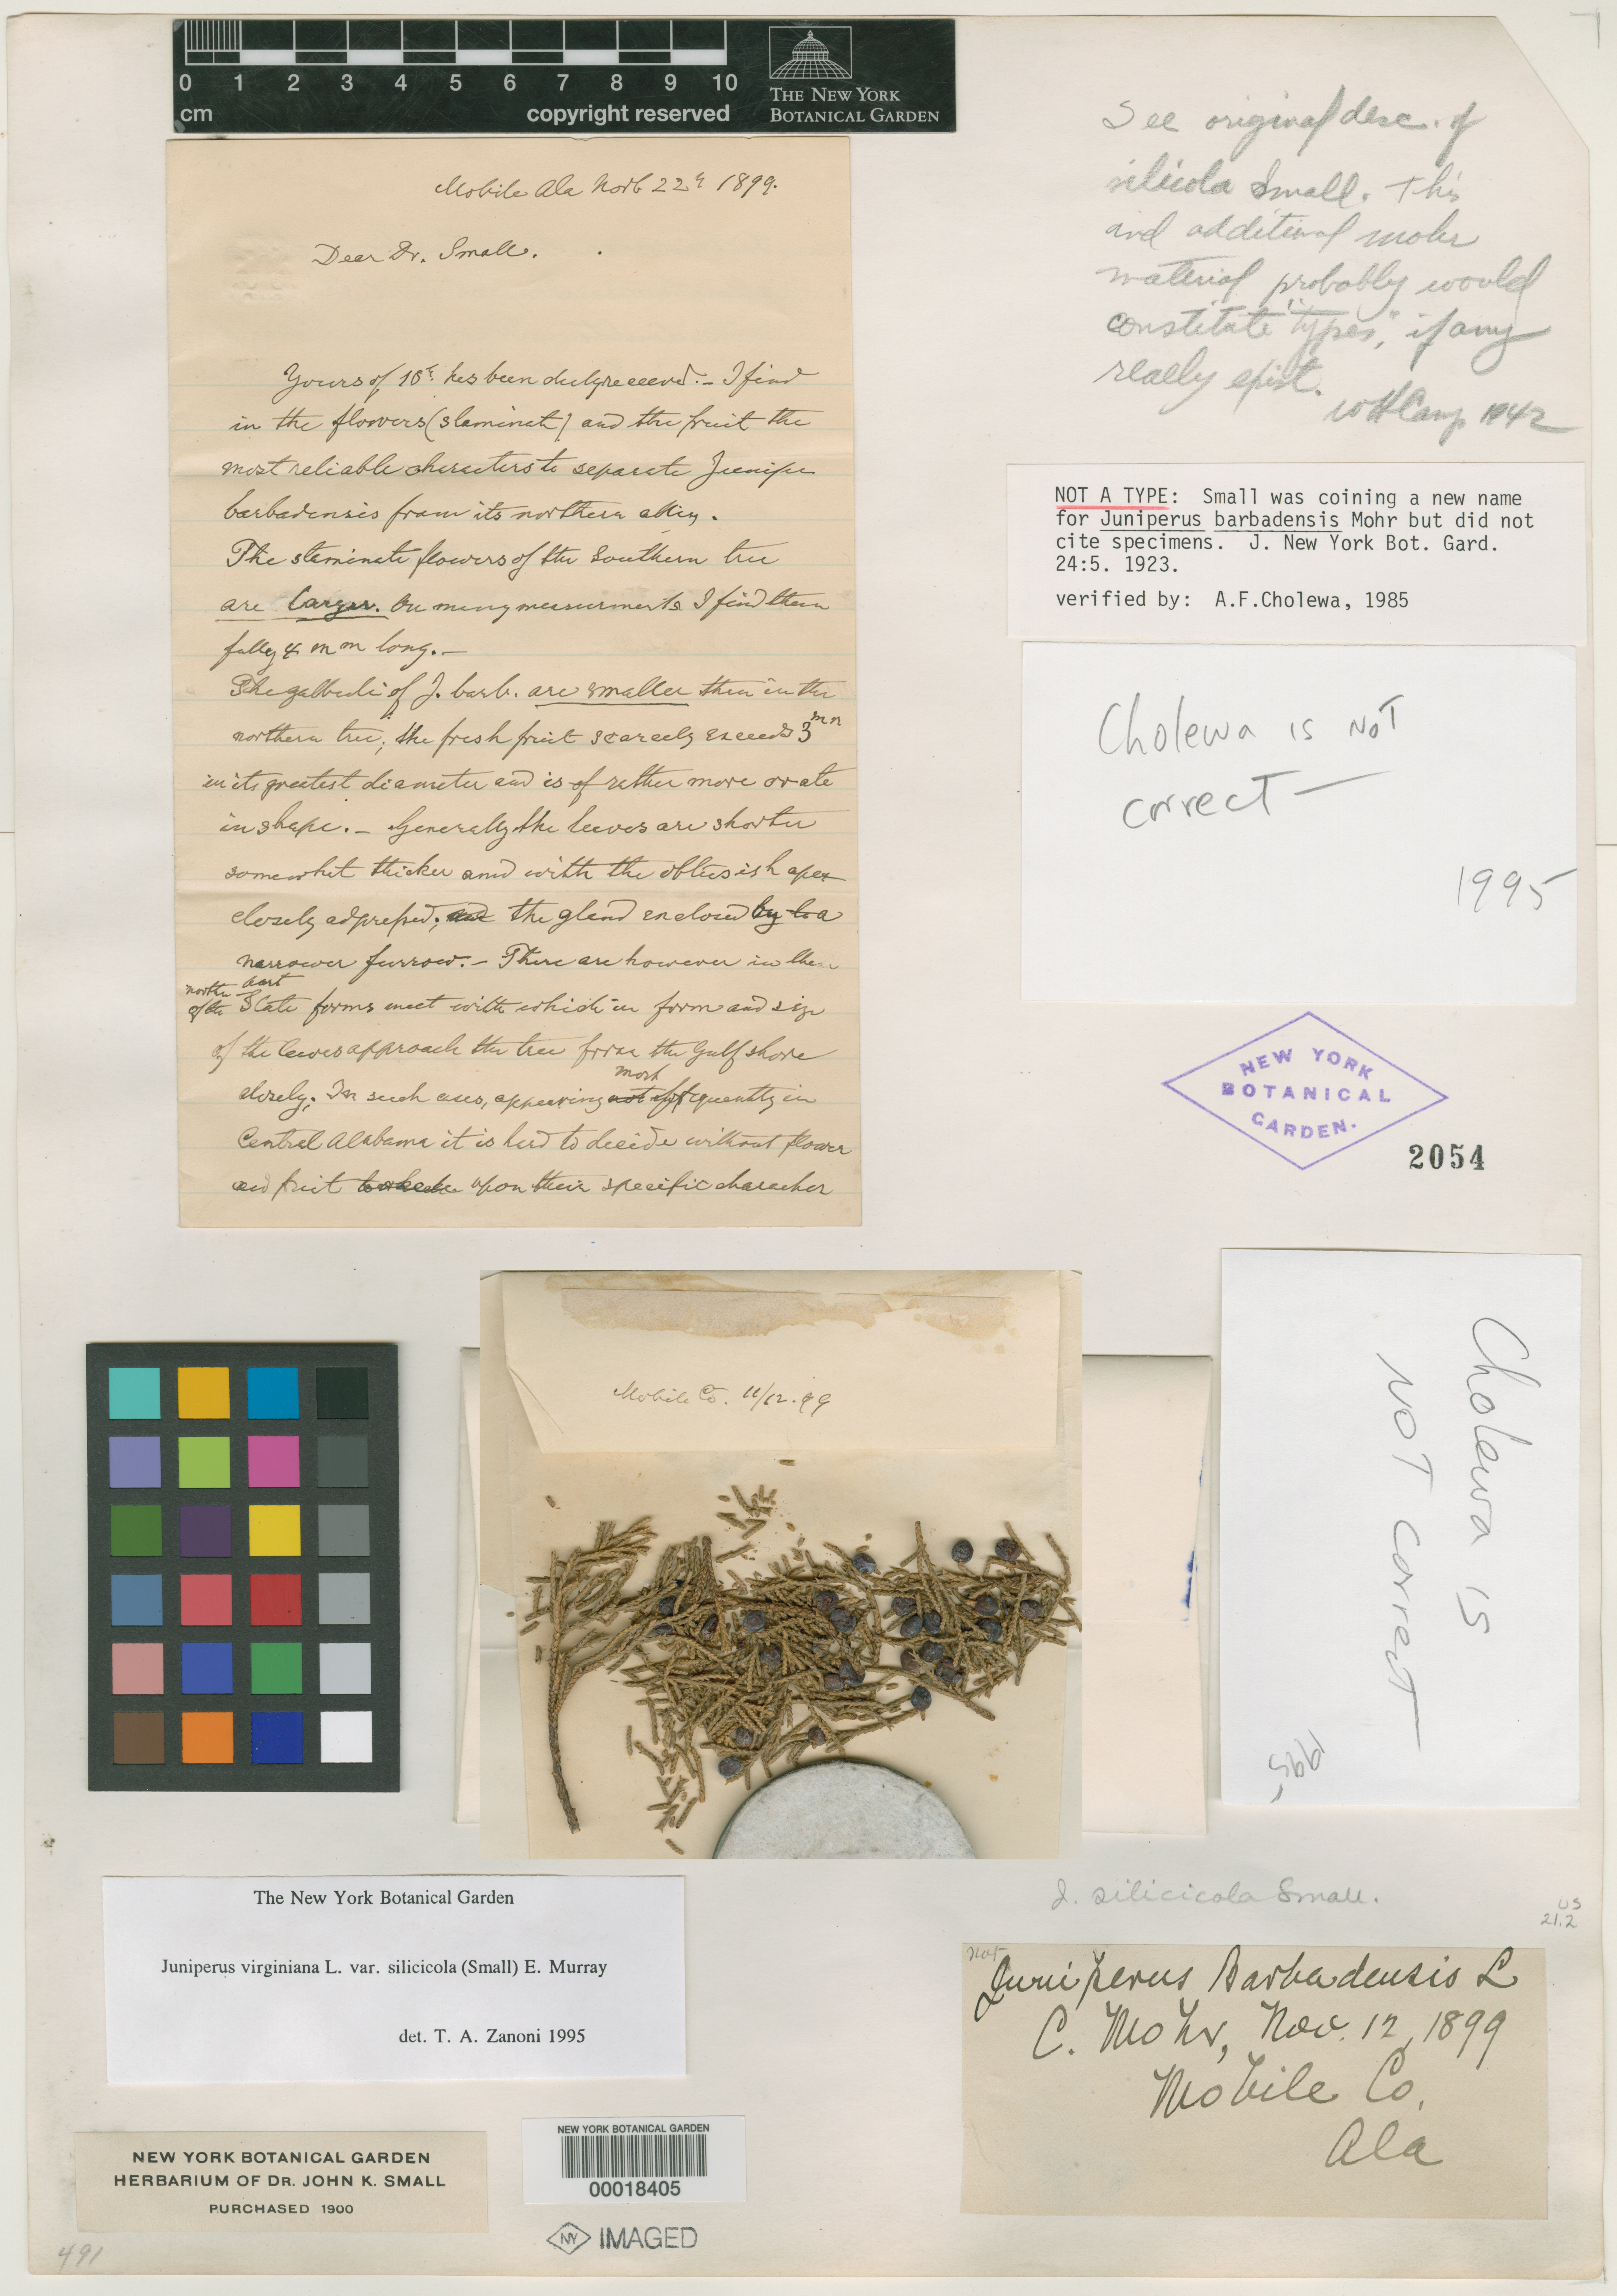 0 1 2 3 4 5 6 7 8 9 10
cm
copyright reserved
THE NEW YORK
BOTANICAL GARDEN
Mobile Ala Novb 22d 1899.
Dear Dr. Small.
Yours of 18t. has been duly received. – I find
in the flowers (staminate) and the fruit the
most reliable characters to separate Junipe
barbadensis from its northern
The staminate flowers of the Southern tree
are larger. On many measurements I find them
fully 4 m m long. –
The galbuli of J. barb. are smaller then in the
northern tree; the fresh fruit scarcely exceeds 3 mm
in its greatest diameter and is of rather more ovate
in shape. – Generally the leaves are shorter
somewhat thicker and with the obtusish apex
closely adpressed; and the gland enclosed by a
narrower furrow. – There are however in the
northern part
of the State forms meet with which in form and size
of the leaves approach the tree from the Gulf shore
closely; In such cases, appearing not most frequently in
Central Alabama it is hard to decide without flower
and fruit upon their specific character
See original desc. of
silicola Small. This
and additional Mohr
material probably would
constitute "types," if any
really exist.
WHCamp 1942
NOT A TYPE: Small was coining a new name
for Juniperus barbadensis Mohr but did not
cite specimens. J. New York Bot. Gard.
24:5. 1923.
verified by: A.F.Cholewa, 1985
Cholewa is NOT
correct —
1995
NEW YORK
BOTANICAL
GARDEN.
2054
Mobile Co. 11/12.99
Cholewa is
NOT correct —
1995
The New York Botanical Garden
Juniperus virginiana L. var. silicicola (Small) E. Murray
det. T. A. Zanoni 1995
J. silicicola Small.
US
21.2
not
Juniperus Barbadensis L
C. Mohr, Nov. 12, 1899
Mobile Co.
Ala
NEW YORK BOTANICAL GARDEN
HERBARIUM OF DR. JOHN K. SMALL
PURCHASED 1900
NEW YORK BOTANICAL GARDEN
00018405
NY IMAGED
491